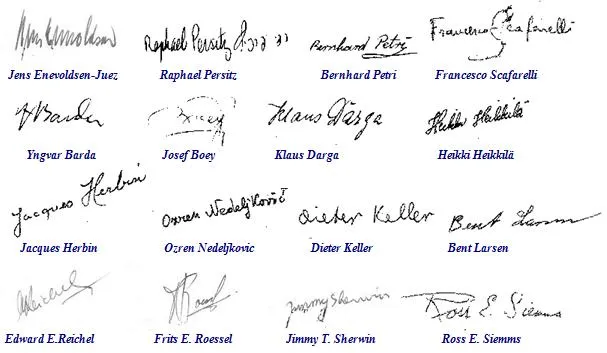 Jens Enevoldsen
Raphael Persitz
Bernhard Petrij
Francesco Scafarelli
Jens Enevoldsen-Juez
Raphael Persitz
Bernhard Petri
Francesco Scafarelli
Y Barda
Boey
Klaus Darga
Heikki Heikkilä
Yngvar Barda
Josef Boey
Klaus Darga
Heikki Heikkilä
Jacques Herbin
Ozren Nedeljković
Dieter Keller
Bent Larsen
Jacques Herbin
Ozren Nedeljkovic
Dieter Keller
Bent Larsen
Reichel
Jimmy Sherwin
Ross E. Siemms
Edward E.Reichel
Frits E. Roessel
Jimmy T. Sherwin
Ross E. Siemms